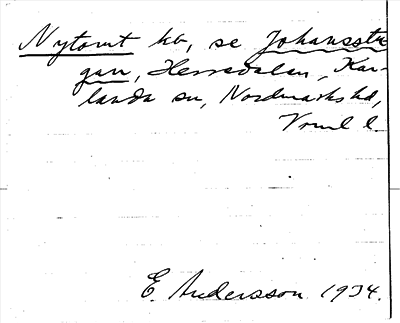 Nytomt hb, se Johansstu-
gan, Herredalen, Kar-
landa sn, Nordmarks hd,
Vrml l.
E. Andersson 1934.